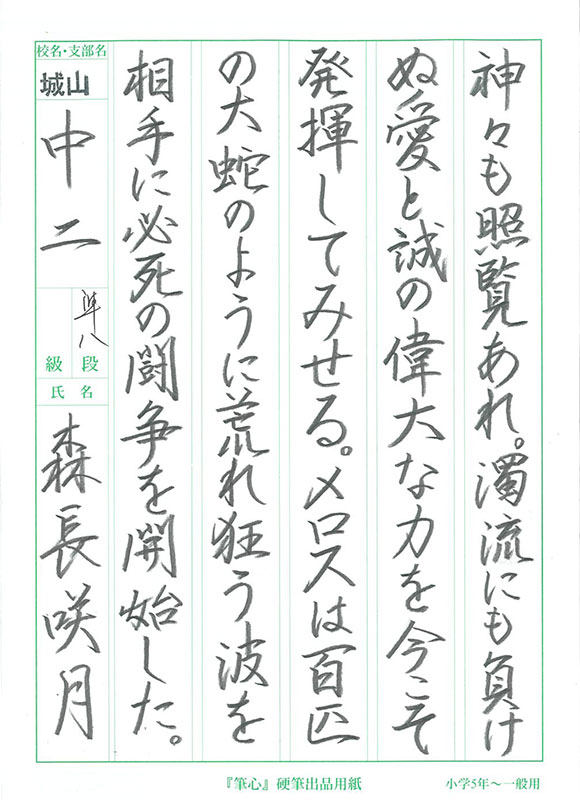 神々も照覧あれ。濁流にも負け
ぬ愛と誠の偉大な力を今こそ
発揮してみせる。メロスは百匹
の大蛇のように荒れ狂う波を
相手に必死の闘争を開始した。
校名・支部名
城山
中二
準八
級 段
氏名
森長咲月
『筆心』硬筆出品用紙
小学5年〜一般用